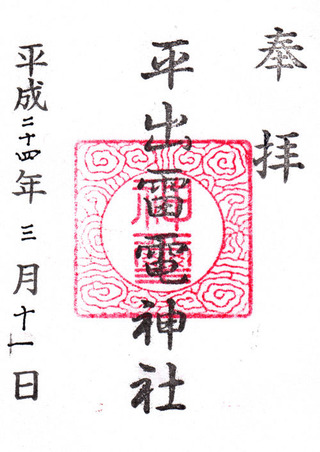 奉拝
平出雷電神社
平成二十四年三月十一日